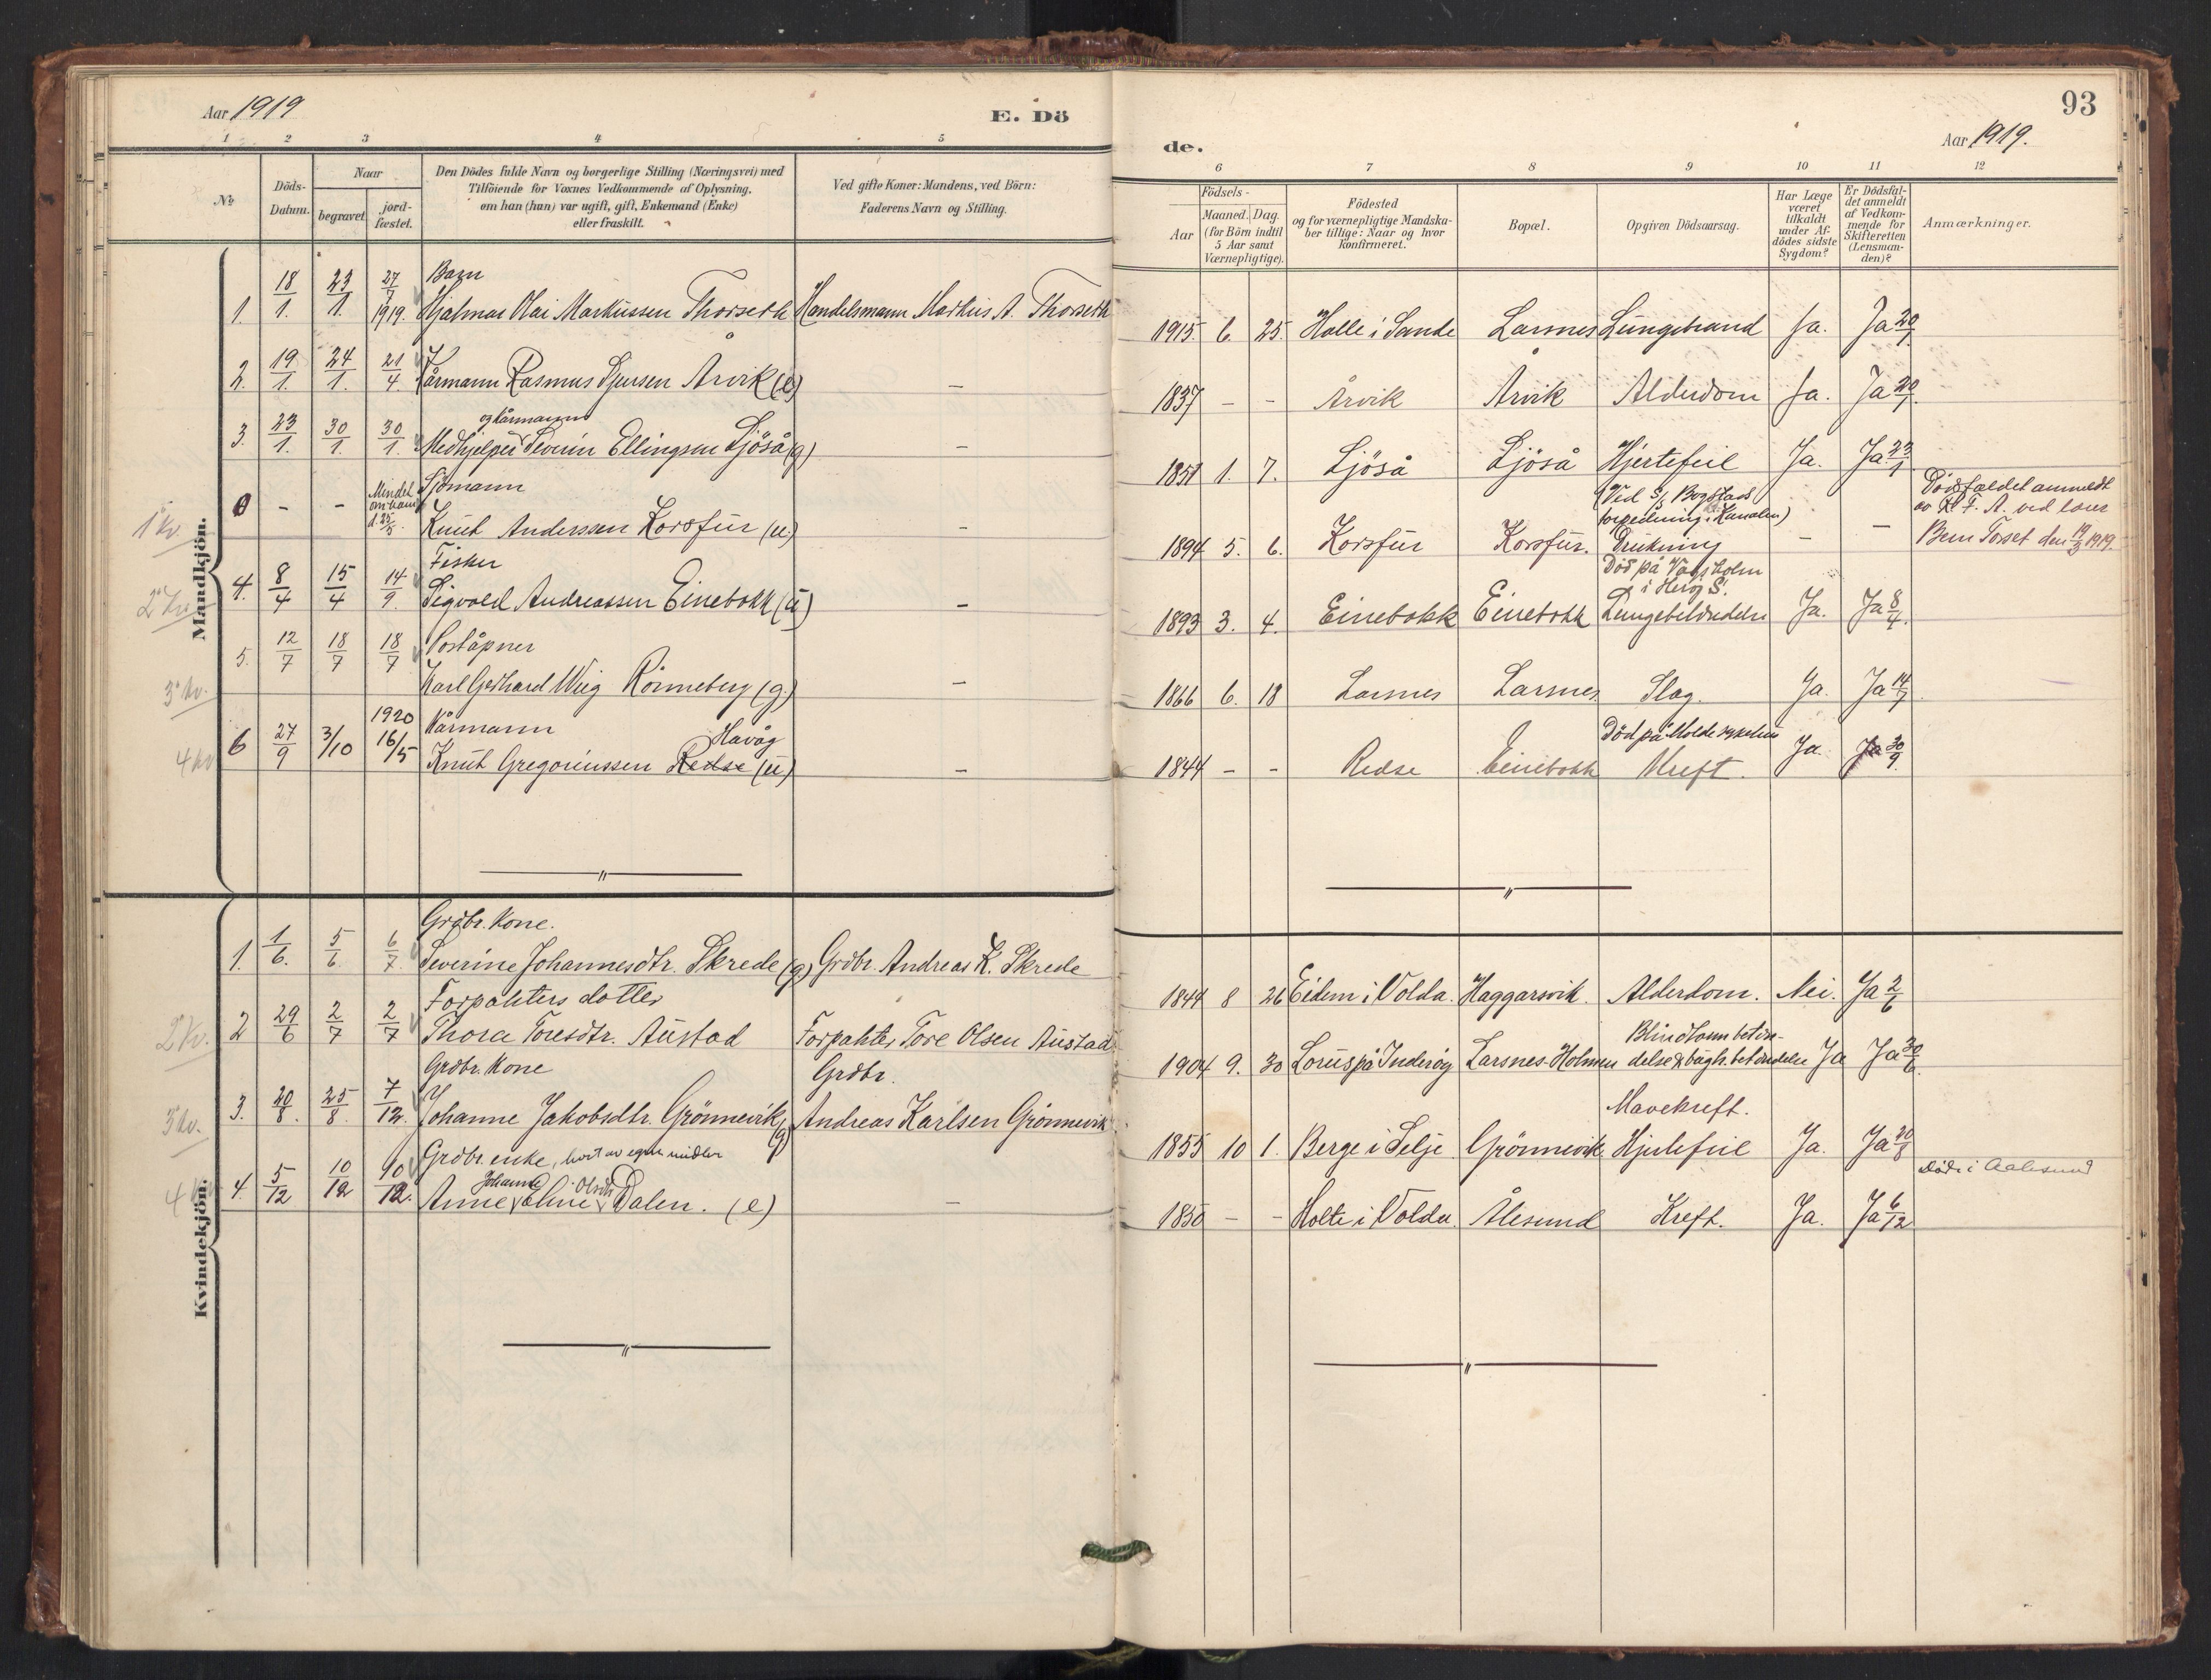 Aar 1919
E. Dö
1 2 3 4 5
№
Döds-Datum.
Naar
begravet
jord-fæstet.
Den Dödes fulde Navn og borgerlige Stilling (Næringsvei) med
Tilföiende for Voxnes Vedkommende af Oplysning,
om han (hun) var ugift, gift, Enkemand (Enke)
eller fraskilt.
Ved gifte Koner: Mandens, ved Börn:
Faderens Navn og Stilling.
Mandkjön.
Barn
1. 18/1. 23/1. 27/7 1919. Hjalmar Olai Markussen Thorseth Handelsmann Markus A. Thorseth
2. 19/1. 24/1. 21/4. Kårmann Rasmus Sjursen Årvik (e) –
og kårmann
3. 23/1. 30/1. 30/1. Medhjelper Severin Ellingsen Ljöså (g) –
1 kv.
Sjömann
0 - - Mindet om ham d. 25/5 Knut Anderssen Korsfur (u) –
2 kv.
Fisker
4. 8/4 15/4 14/9. Sigvald Andreassen Einebokk (u) –
Poståpner
5. 12/7 18/7 18/7
3 kv.
Karl Gerhard Wiig Rönneberg (g.) –
1920 Kårmann Havåg
4 kv 6 27/9 3/10 16/5 Knut Gregoriussen Redse (u) –
Kvindekjön.
Grdbr. Kone.
1. 1/6. 5/6 6/7. Severine Johannesdtr. Skrede (g) Grdbr. Andreas K. Skrede
Forpakters datter
2 kv. 2 29/6 2/7 2/7 Thora Toresdtr. Austad Forpakter Tore Olsen Austad
Grdbr. Kone Grdbr.
3 kv. 3. 20/8. 25/8 7/12. Johanne Jakobsdtr. Grönnevik (g) Andreas Karlsen Grönnevik
Grdbr. enke, levet av egne midler
Johanne Olsdtr
4 kv 4. 5/12 10/12 10/12. Anne Eline Dalen. (e) –
de.
93
Aar 1919.
6 7 8 9 10 11 12
Födsels-
Aar
Maaned. Dag.
(for Börn indtil
5 Aar samt
Værnepligtige).
Födested
og for værnepligtige Mandska-
ber tillige: Naar og hvor
konfirmeret.
Bopæl.
Opgiven Dödsaarsag.
Har Læge
været
tilkaldt
under Af-
dödes sidste
Sygdom?
Er Dödsfal-
det anmeldt
af Vedkom-
mende for
Skifteretten
(Lensman-
den)?
Anmærkninger.
1915. 6. 25. Halle i Sande Larsnes Lungebrand Ja. Ja 20/1
1837 - - Årvik Årvik Alderdom Ja. Ja 20/1
1851 1. 7. Ljöså Ljöså Hjertefeil Ja. Ja 23/1
(Ved S/S Bogstads
torpedering i Kanalen)
1894 5. 6. Korsfur Korsfur. Drukning – –
Dödsfaldet anmeldt
av K. F. A. ved
Torset den 19/3 1919.
Död på Vågsholm
i Herø S.
1893 3. 4. Einebokk Einebokk Lungebetændelse Ja. Ja 8/4.
1866 6. 18 Larsnes Larsnes. Slag. Ja. Ja 14/7
Död på Molde sykehus
1844 - - Redse Einebokk Kreft. Ja Ja 30/9.
1844 8 26 Eidem i Volda. Haggarsvik. Alderdom. Nei. Ja 2/6
Blindtarmbetæn-
1904 9. 30 på Inderöy Larsnes-Holmen delse & bughindebetændelse Ja Ja 30/6.
Mavekreft.
1855 10 1. Berge i Selje Grönnevik. Hjertefeil Ja. Ja 20/8
1850 - - Holte i Volda. Ålesund Kreft. Ja. Ja 6/12
Döde i Aalesund